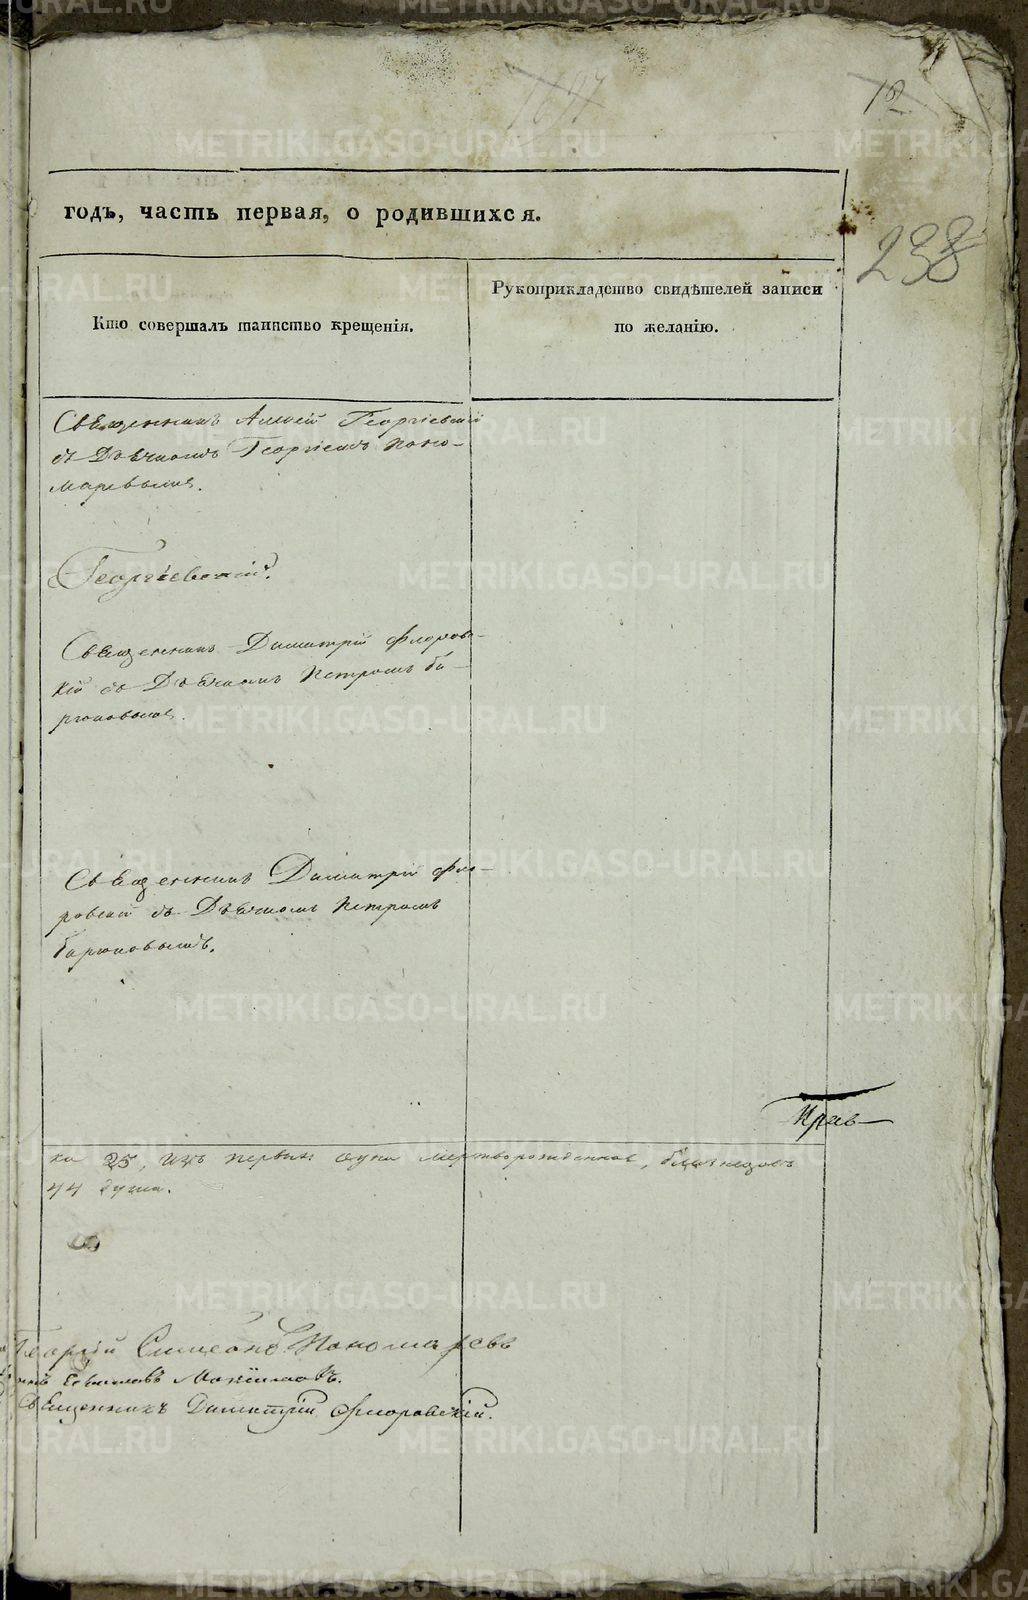 18
238
годъ, часть первая, о родившихся.
Кто совершалъ таинство крещенія.
Рукоприкладство свидѣтелей записи
по желанію.
Священникъ Алексѣй Георгіевскій
съ Дьячкомъ Георгіемъ Поно-
маревымъ.
Георгіевскій.
Священникъ Димитрій Флоровс-
кій съ Дьячкомъ Петромъ Ба-
рюковымъ.
Священникъ Димитрій Фло-
ровскій съ Дьячкомъ Петромъ
Барюковымъ.
ка 25, изъ первыхъ мертворожденное, близнецовъ
44 душа.
Георгій Симеоновъ Пономаревъ
Максимовъ.
Священникъ Димитрій Флоровскій.
METRIKI.GASO-URAL.RU